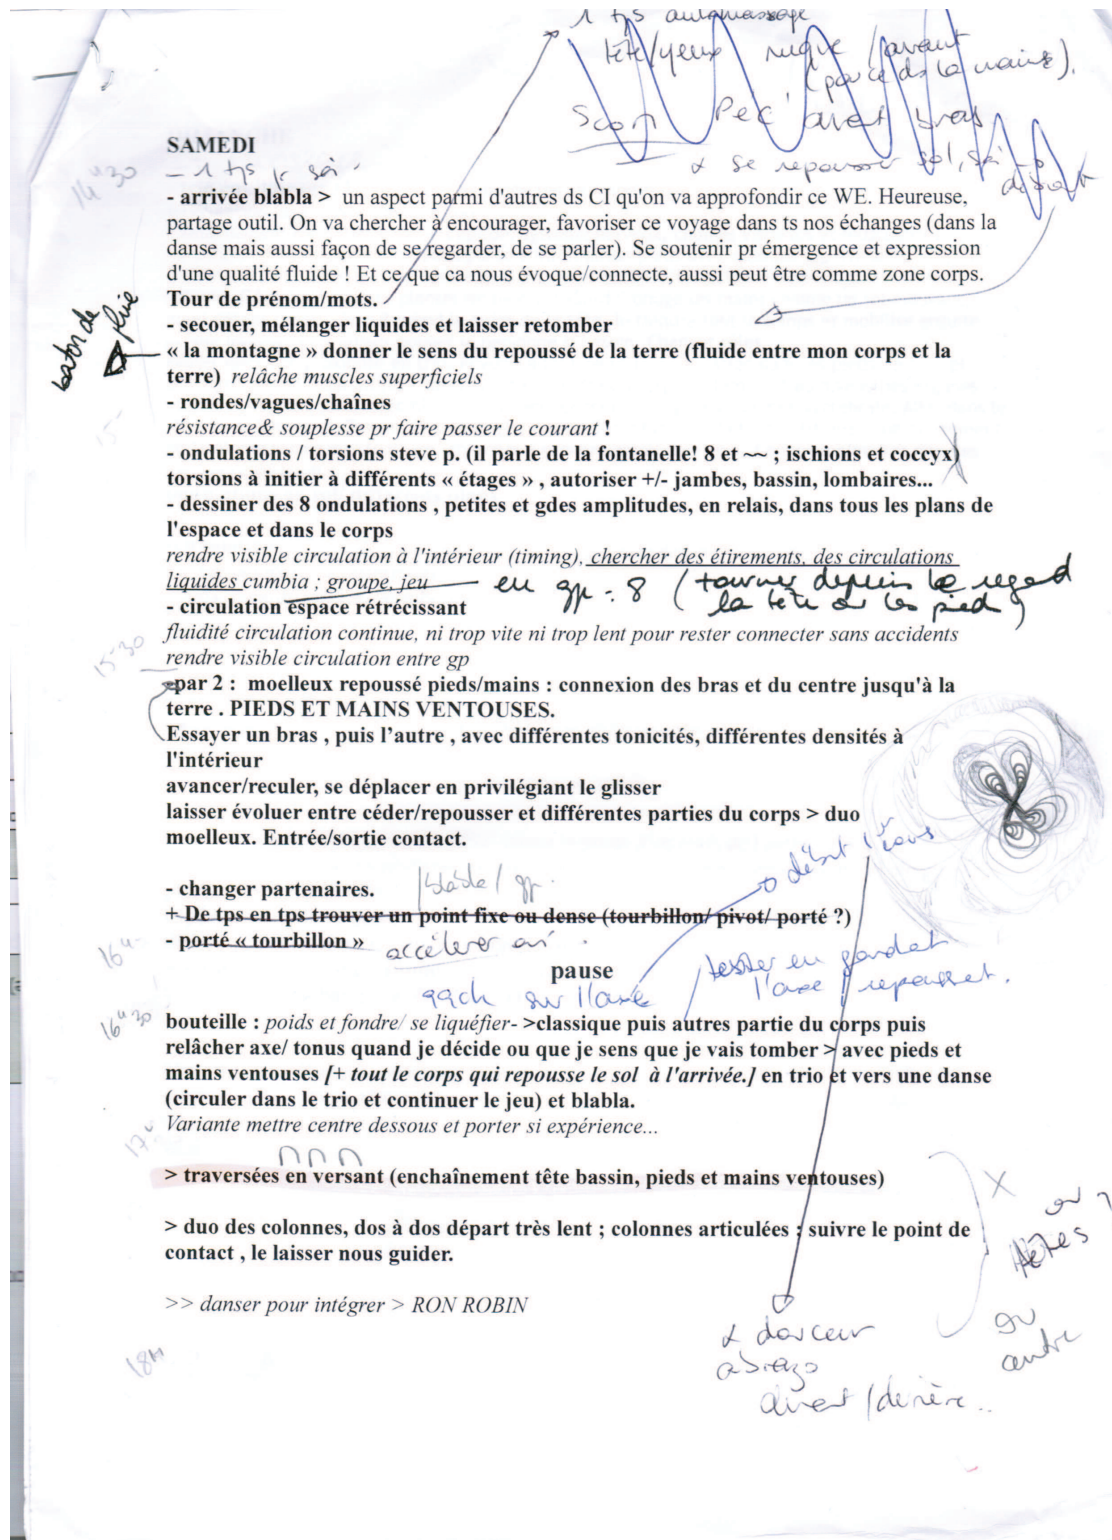 1 tps automassage
tête/yeux nuque /avant
(par ce ds la mains).
Scom Péc' avant bras
& se repousser sol, soi →
départ
SAMEDI
14h30
- 1 tps pr soi -
- arrivée blabla > un aspect parmi d'autres ds CI qu'on va approfondir ce WE. Heureuse,
partage outil. On va chercher à encourager, favoriser ce voyage dans ts nos échanges (dans la
danse mais aussi façon de se regarder, de se parler). Se soutenir pr émergence et expression
d'une qualité fluide ! Et ce que ca nous évoque/connecte, aussi peut être comme zone corps.
Tour de prénom/mots.
- secouer, mélanger liquides et laisser retomber
baton de
pluie
« la montagne » donner le sens du repoussé de la terre (fluide entre mon corps et la
terre) relâche muscles superficiels
- rondes/vagues/chaînes
15-
résistance& souplesse pr faire passer le courant !
- ondulations / torsions steve p. (il parle de la fontanelle! 8 et ~~ ; ischions et coccyx)
torsions à initier à différents « étages » , autoriser +/- jambes, bassin, lombaires...
- dessiner des 8 ondulations , petites et gdes amplitudes, en relais, dans tous les plans de
l'espace et dans le corps
rendre visible circulation à l'intérieur (timing), chercher des étirements, des circulations
liquides cumbia ; groupe, jeu
en gp : 8 (tourner depuis le regard
la tête ou les pied)
- circulation espace rétrécissant
fluidité circulation continue, ni trop vite ni trop lent pour rester connecter sans accidents
15-30
rendre visible circulation entre gp
-par 2 : moelleux repoussé pieds/mains : connexion des bras et du centre jusqu'à la
terre . PIEDS ET MAINS VENTOUSES.
Essayer un bras , puis l’autre , avec différentes tonicités, différentes densités à
l'intérieur
avancer/reculer, se déplacer en privilégiant le glisser
laisser évoluer entre céder/repousser et différentes parties du corps > duo
moelleux. Entrée/sortie contact.
début
- changer partenaires.
/blabla/ gp.
+ De tps en tps trouver un point fixe ou dense (tourbillon/ pivot/ porté ?)
16h-
- porté « tourbillon »
accélerer
pause
tester en gardant
l'axe / repoussant.
sur l'axe
16h30
bouteille : poids et fondre/ se liquéfier- >classique puis autres partie du corps puis
relâcher axe/ tonus quand je décide ou que je sens que je vais tomber > avec pieds et
mains ventouses [+ tout le corps qui repousse le sol à l'arrivée.] en trio et vers une danse
(circuler dans le trio et continuer le jeu) et blabla.
Variante mettre centre dessous et porter si expérience...
17h
> traversées en versant (enchaînement tête bassin, pieds et mains ventouses)
> duo des colonnes, dos à dos départ très lent ; colonnes articulées ; suivre le point de
contact , le laisser nous guider.
ou
têtes
>> danser pour intégrer > RON ROBIN
ou
centre
18H
& douceur
abrazo
avant / derière ..